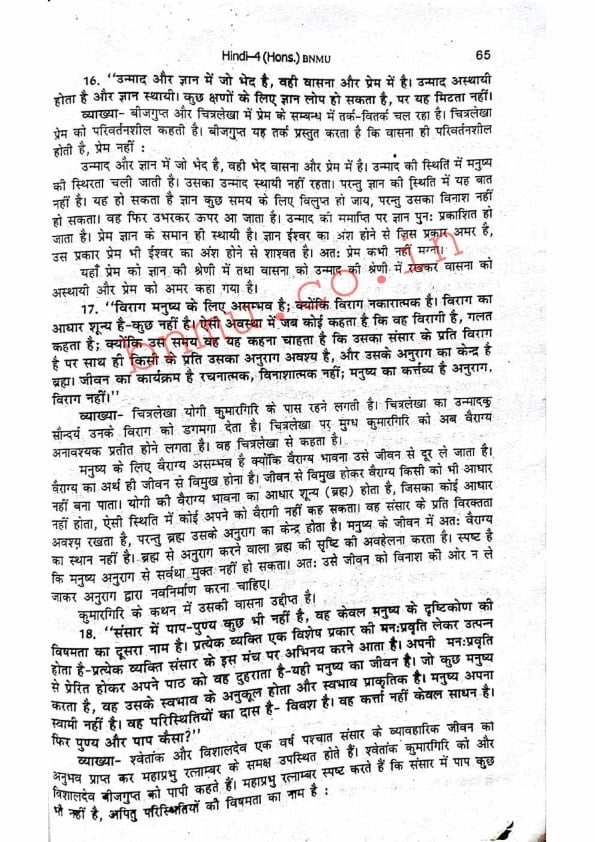 Hindi–4 (Hons.) BNMU 65
16. "उन्माद और ज्ञान में जो भेद है, वही वासना और प्रेम में है। उन्माद अस्थायी
होता है और ज्ञान स्थायी। कुछ क्षणों के लिए ज्ञान लोप हो सकता है, पर यह मिटता नहीं।
व्याख्या- बीजगुप्त और चित्रलेखा में प्रेम के सम्बन्ध में तर्क-वितर्क चल रहा है। चित्रलेखा
प्रेम को परिवर्तनशील कहती है। बीजगुप्त यह तर्क प्रस्तुत करता है कि वासना ही परिवर्तनशील
होती है, प्रेम नहीं :
उन्माद और ज्ञान में जो भेद है, वही भेद वासना और प्रेम में है। उन्माद की स्थिति में मनुष्य
की स्थिरता चली जाती है। उसका उन्माद स्थायी नहीं रहता। परन्तु ज्ञान की स्थिति में यह बात
नहीं है। यह हो सकता है ज्ञान कुछ समय के लिए विलुप्त हो जाय, परन्तु उसका विनाश नहीं
हो सकता। वह फिर उभरकर ऊपर आ जाता है। उन्माद की समाप्ति पर ज्ञान पुनः प्रकाशित हो
जाता है। प्रेम ज्ञान के समान ही स्थायी है। ज्ञान ईश्वर का अंश होने से जिस प्रकार अमर है,
उस प्रकार प्रेम भी ईश्वर का अंश होने से शाश्वत है। अतः प्रेम कभी नहीं मग्ना।
यहाँ प्रेम को ज्ञान की श्रेणी में तथा वासना को उन्माद की श्रेणी में रखकर वासना को
अस्थायी और प्रेम को अमर कहा गया है।
17. "विराग मनुष्य के लिए असम्भव है; क्योंकि विराग नकारात्मक है। विराग का
आधार शून्य है-कुछ नहीं है। ऐसी अवस्था में जब कोई कहता है कि वह विरागी है, गलत
कहता है; क्योंकि उस समय वह यह कहना चाहता है कि उसका संसार के प्रति विराग
है पर साथ ही किसी के प्रति उसका अनुराग अवश्य है, और उसके अनुराग का केन्द्र है
ब्रह्म। जीवन का कार्यक्रम है रचनात्मक, विनाशात्मक नहीं; मनुष्य का कर्त्तव्य है अनुराग,
विराग नहीं।"
व्याख्या- चित्रलेखा योगी कुमारगिरि के पास रहने लगती है। चित्रलेखा का उन्मादक
सौन्दर्य उनके विराग को डगमगा देता है। चित्रलेखा पर मुग्ध कुमारगिरि को अब वैराग्य
अनावश्यक प्रतीत होने लगता है। वह चित्रलेखा से कहता है।
मनुष्य के लिए वैराग्य असम्भव है क्योंकि वैराग्य भावना उसे जीवन से दूर ले जाता है।
वैराग्य का अर्थ ही जीवन से विमुख होना है। जीवन से विमुख होकर वैराग्य किसी को भी आधार
नहीं बना पाता। योगी की वैराग्य भावना का आधार शून्य (ब्रह्म) होता है, जिसका कोई आधार
नहीं होता, ऐसी स्थिति में कोई अपने को वैरागी नहीं कह सकता। वह संसार के प्रति विरक्तता
अवश्य रखता है, परन्तु ब्रह्म उसके अनुराग का केन्द्र होता है। मनुष्य के जीवन में अतः वैराग्य
का स्थान नहीं है। ब्रह्म से अनुराग करने वाला ब्रह्म की सृष्टि की अवहेलना करता है। स्पष्ट है
कि मनुष्य अनुराग से सर्वथा मुक्त नहीं हो सकता। अतः उसे जीवन को विनाश की ओर न ले
जाकर अनुराग द्वारा नवनिर्माण करना चाहिए।
कुमारगिरि के कथन में उसकी वासना उद्दीप्त है।
18. "संसार में पाप-पुण्य कुछ भी नहीं है, वह केवल मनुष्य के दृष्टिकोण की
विषमता का दूसरा नाम है। प्रत्येक व्यक्ति एक विशेष प्रकार की मनःप्रवृति लेकर उत्पन्न
होता है-प्रत्येक व्यक्ति संसार के इस मंच पर अभिनय करने आता है। अपनी मनःप्रवृति
से प्रेरित होकर अपने पाठ को वह दुहराता है-यही मनुष्य का जीवन है। जो कुछ मनुष्य
करता है, वह उसके स्वभाव के अनुकूल होता और स्वभाव प्राकृतिक है। मनुष्य अपना
स्वामी नहीं है। वह परिस्थितियों का दास है- विवश है। वह कर्त्ता नहीं केवल साधन है।
फिर पुण्य और पाप कैसा?"
व्याख्या- श्वेतांक और विशालदेव एक वर्ष पश्चात संसार के व्यावहारिक जीवन को
अनुभव प्राप्त कर महाप्रभु रत्नाम्बर के समक्ष उपस्थित होते हैं। श्वेतांक कुमारगिरि को और
विशालदेव बीजगुप्त को पापी कहते हैं। महाप्रभु रत्नाम्बर स्पष्ट करते हैं कि संसार में पाप कुछ
भी नहीं है, अपितु परिस्थितियों की विषमता का नाम है :
bnmu.co.in